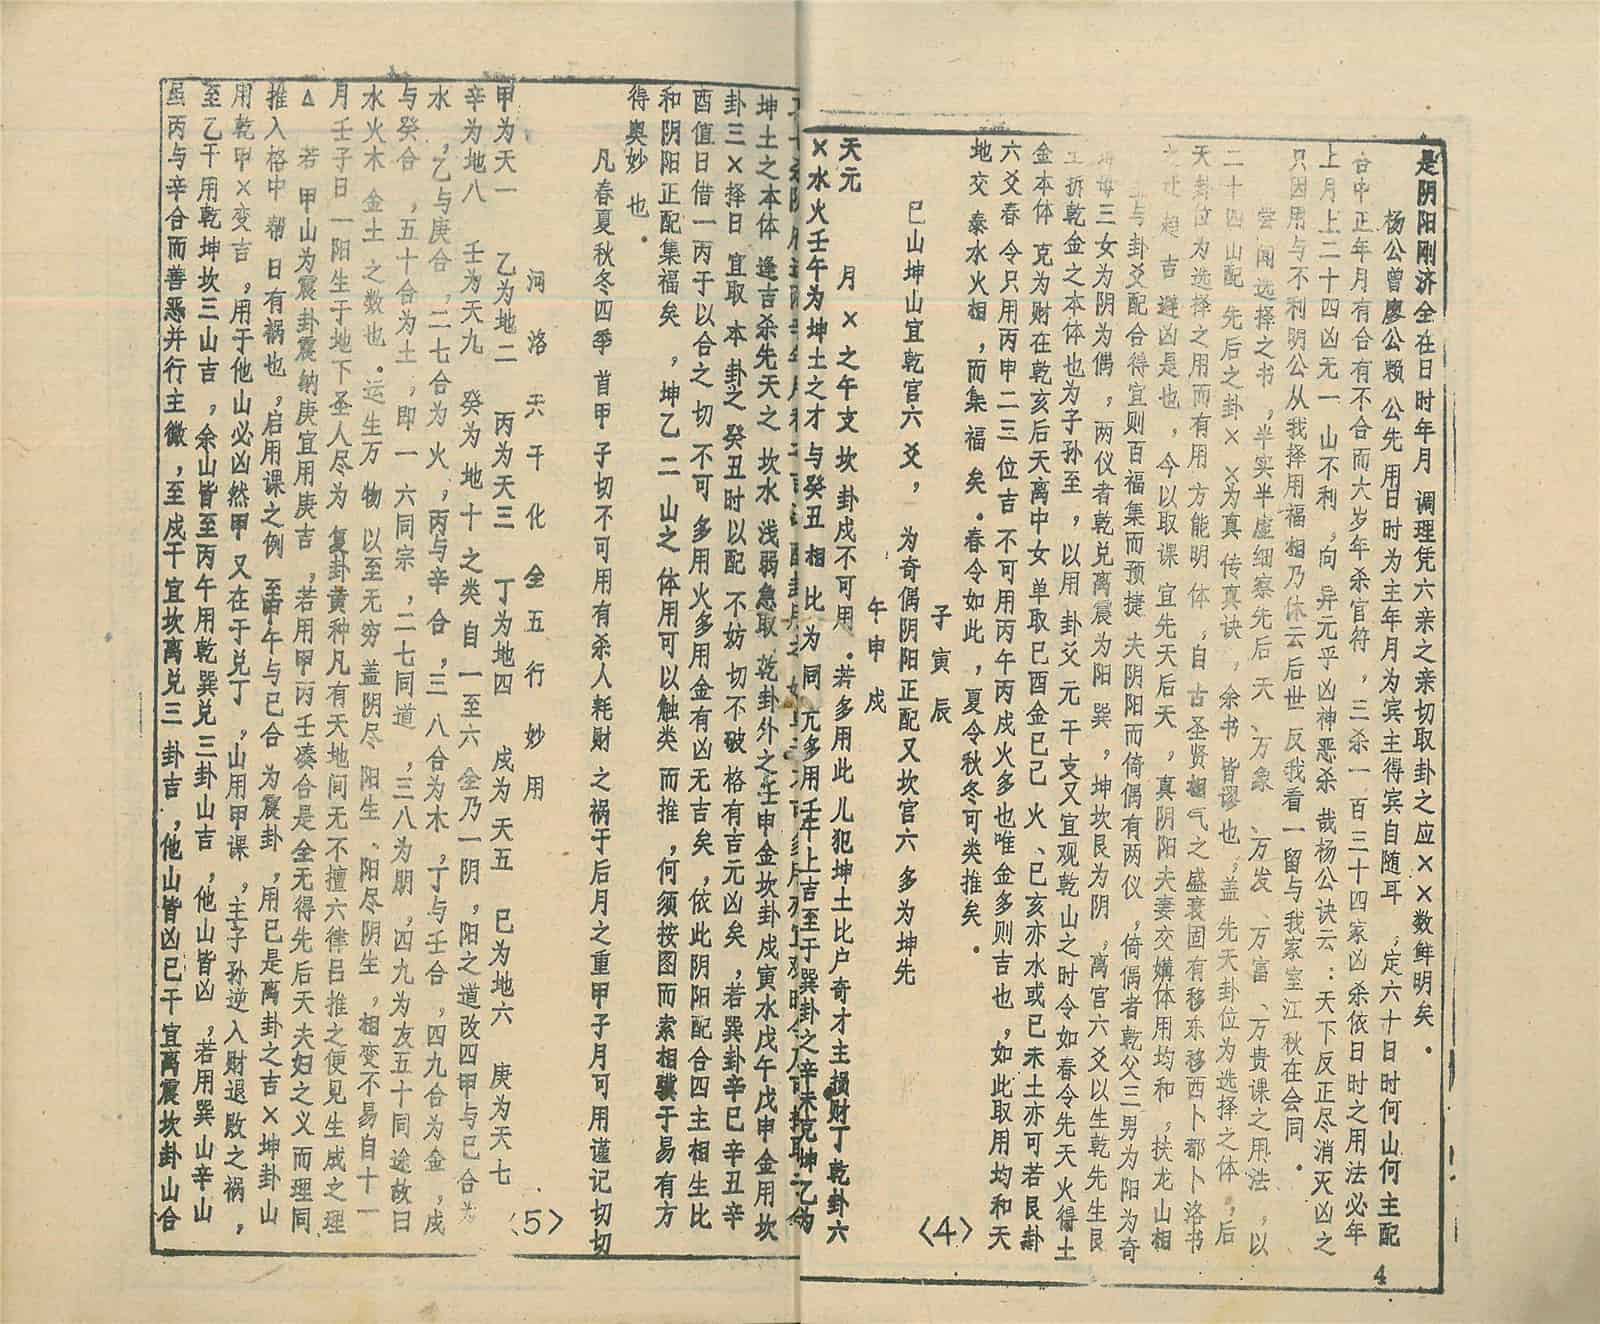 是阴阳刚济全在日时年月 调理凭六亲之亲切取卦之应××数鲜明矣.
杨公曾廖公赖 公先用日时为主年月为宾主得宾自随耳 ,定六十日时何山何主配
合中正年月有合有不合而大岁年杀官符 ,三杀一百三十四家凶杀依日时之用法必年
上月上二十四凶无一 山不利 ,向 异元乎凶神恶杀 哉杨公诀云:天下反正尽消灭凶之
只因用与不利明公从我择用福相乃休云后世 反我看一留与我家室江秋在会同.
尝闻选择之书 ,半实半虚细察先后天、万象、万发、万富、万贵课之用法 ,以
二十四山配 先后之卦××为真 传真诀 ,余书 皆谬也 ;盖 先天卦位为选择之体 ,后
天卦位为选择之用而有用 方能明 体 ,自 古圣贤 相气之盛衰固有移东移西卜都卜洛书
趋 吉 避凶是也 ,今以取课 宜先天后天 ,真阴阳夫妻交媾体用均和 ,扶龙山相
与卦爻配合得宜则百福集而预捷 夫阴阳而倚偶有两仪 ,倚偶者乾父三男为阳为奇
母三女为阴为偶 ,两仪者乾兑离震为阳 巽 ,坤坎艮为阴 ,离宫六爻以生乾先生艮
拆乾金之本体也为子孙至 ,以用 卦爻元 干支又宜观乾山之时令如春令先天火得土
金本体 克为财在乾亥后天离中女 单取巳酉金已己 火、巳亥亦水或已未土亦可若艮卦
六爻春 令只用丙甲二三位吉 不可用丙午丙戌火多也唯金多则吉也 ,如此取用均和天
地交 泰水火相 ,而集福 矣.春令如此 ,夏令秋冬可类推矣.
子寅辰
巳山坤山宜乾宫六爻, 为奇偶阴阳正配又坎宫六多为坤先
午申戌
〈4〉
天元 月×之午支坎 卦戌不可用.若多用此儿犯坤土比户奇才主损财丁乾卦六
×水火壬午为坤土之才与癸丑相 比为同 亢多用壬午上吉至于巽卦之辛未克坤乙为
4
坤土之本体 逢吉杀先天之 坎水 浅弱急取 乾卦外之壬申金坎卦戌寅水戊午戊申金用坎
卦三×择日 宜取 本卦之癸丑时以配 不妨 切不破格有吉元凶矣 ,若巽卦辛巳辛丑辛
酉值日借一丙于以合之切 不可 多用火多用金有凶无吉矣 ,依此阴阳配合四主相生比
和阴阳正配集福矣 ,坤乙二 山之 体用可以触类 而推 ,何须按图而索相骥于易有方
得奥妙 也.
凡春夏秋冬四季 首甲 子切不可用有杀人耗财 之祸于后月之重甲子月可用谨记切切
〈5〉
河洛天干化全五行妙用
甲为天一 乙为地二 丙为天三 丁为地四 戌为天五 巳为地六 庚为天七
辛为地八 壬为天九 癸为 地十 之类自 一至六 全乃一阴 ,阳之道改四甲与巳合为
水 ,乙与庚合 ,二七合为 火 ,丙与辛 合 ,三八合为木 ,丁与壬合 ,四九合为金 ,戌
与癸合 ,五十合为土 ,即一六同宗 ,二七同道 ,三八为朋 ,四九为友五十同途故曰
水火木 金土 之数也.运生万 物 以至无穷 盖阴尽 阳生、阳尽阴生 ,相变不易自十一
月壬子日 一阳生于地下圣人尽为 复卦黄种凡有天地间无不擅六律吕推之便见生成之理
△ 若 甲山为震卦震纳庚宜用庚吉 ,若用甲丙壬凑合是全无得先后天夫妇之义而理同
推入格中 帮 日有祸也 ,启用课之例 至 午与巳合 为震卦 ,用巳是离卦之吉×坤卦山
用乾甲×变吉 ,用于他山必凶然甲 又在于兑丁 ,山用甲课 ,主子孙逆入财退败之祸 ,
至乙干用乾坤坎三山吉 ,余山皆至丙午用乾巽兑三卦山吉 ,他山皆凶 ,若用巽山辛山
虽丙与辛合而善恶并行主微 ,至戌干宜坎离兑三卦吉 ,他山皆凶巳干宜离震坎卦山合